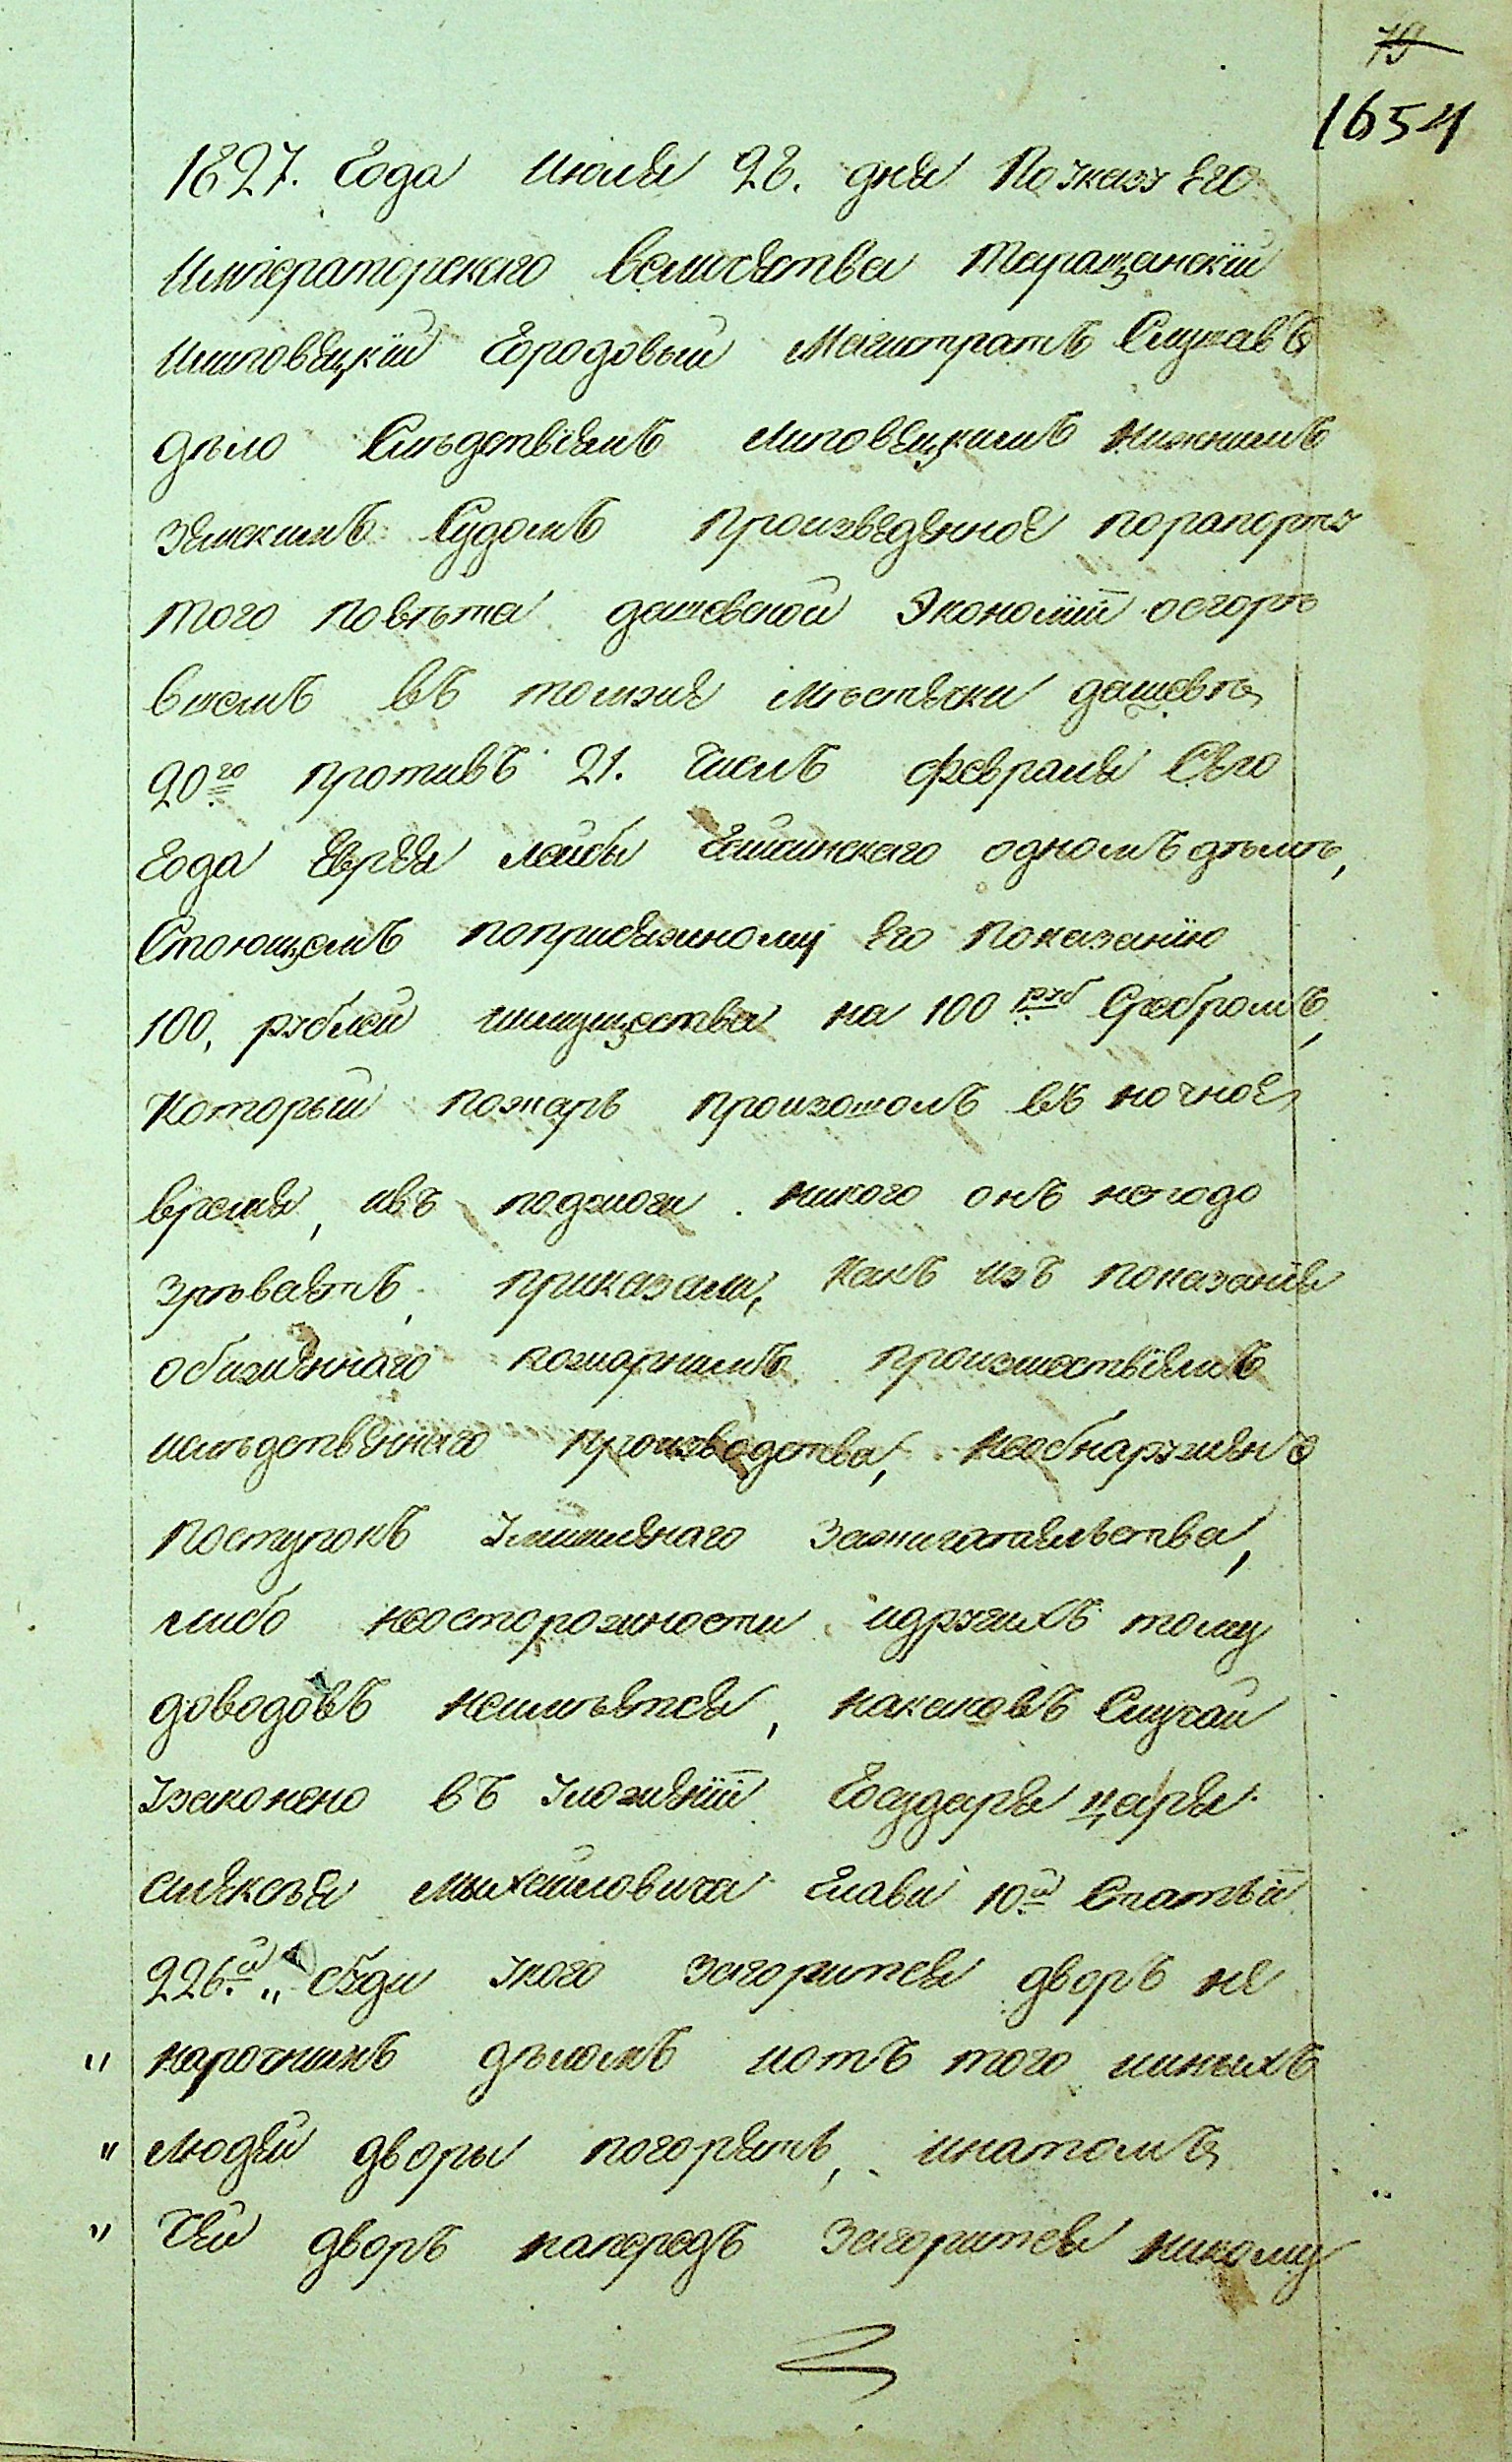 79
1654
1827. Года Июля 28. дня По указу Его
Императорского величества Таращанский
Илиповецкий Городовый Магистратъ Слушавъ
дело Следствіемъ липовецкимъ нижнимъ
земскимъ Судомъ произведенное порапорту
того повета дашевской Экономїи осгоре
вшемъ въ томже местечки дашеве
20го противъ 21. Числъ февраля Сего
Года Еврея лейбы одномъ доме,
Стоющемъ поприсяжному его показанїю
100, рублей имущества на 100 руб Сребромъ,
который пожаръ произошолъ въ ночное
время, ивъ поджоги никого онъ неподо
зреваетъ, приказали, какъ изъ показанія
обиженнаго пожарнимъ произшествіемъ
иследственнаго производства, необнаружено
поступокъ умишленаго зажигательства,
либо неосторожности идругихъ тому
доводовъ неимеется, накаковъ Случай
узаконено въ уложенїи Государя царя
алексея Михайловича Глави 10й Статьи
226й „ буди укого загорится дворъ не
" нарочнимъ деломъ иотъ того иныхъ
" людей дворы погорятъ, инатомъ
" Чей дворъ напередъ загорится никому